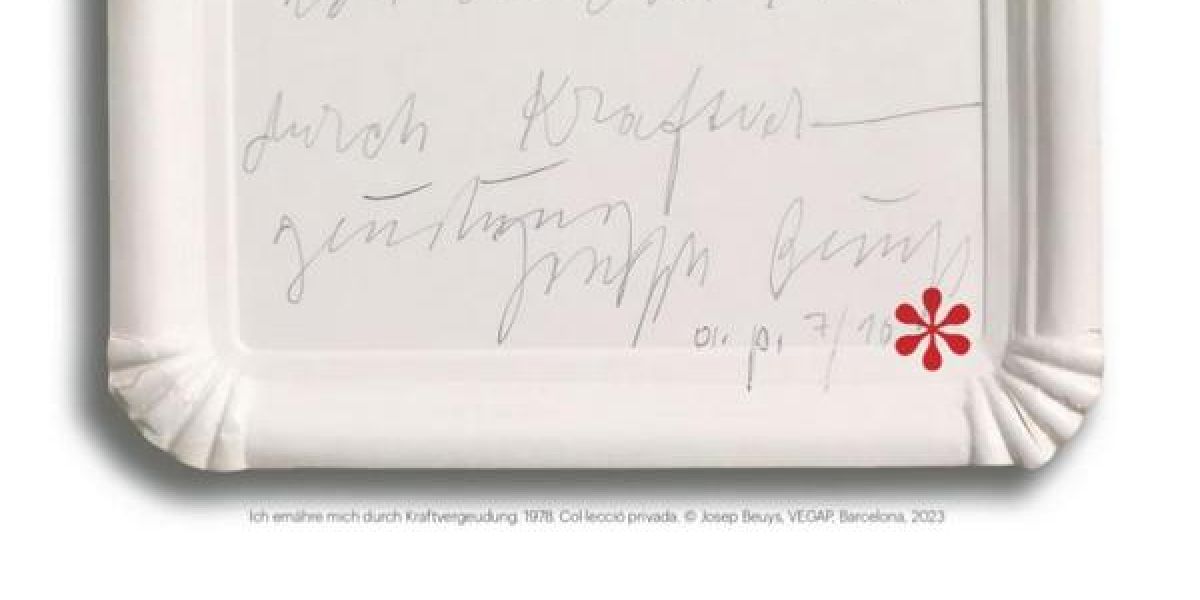 durch Kraftver—
geudung Joseph Beuys
a. p. 7/10
Ich ernähre mich durch Kraftvergeudung. 1978. Col·lecció privada. © Josep Beuys, VEGAP, Barcelona, 2023